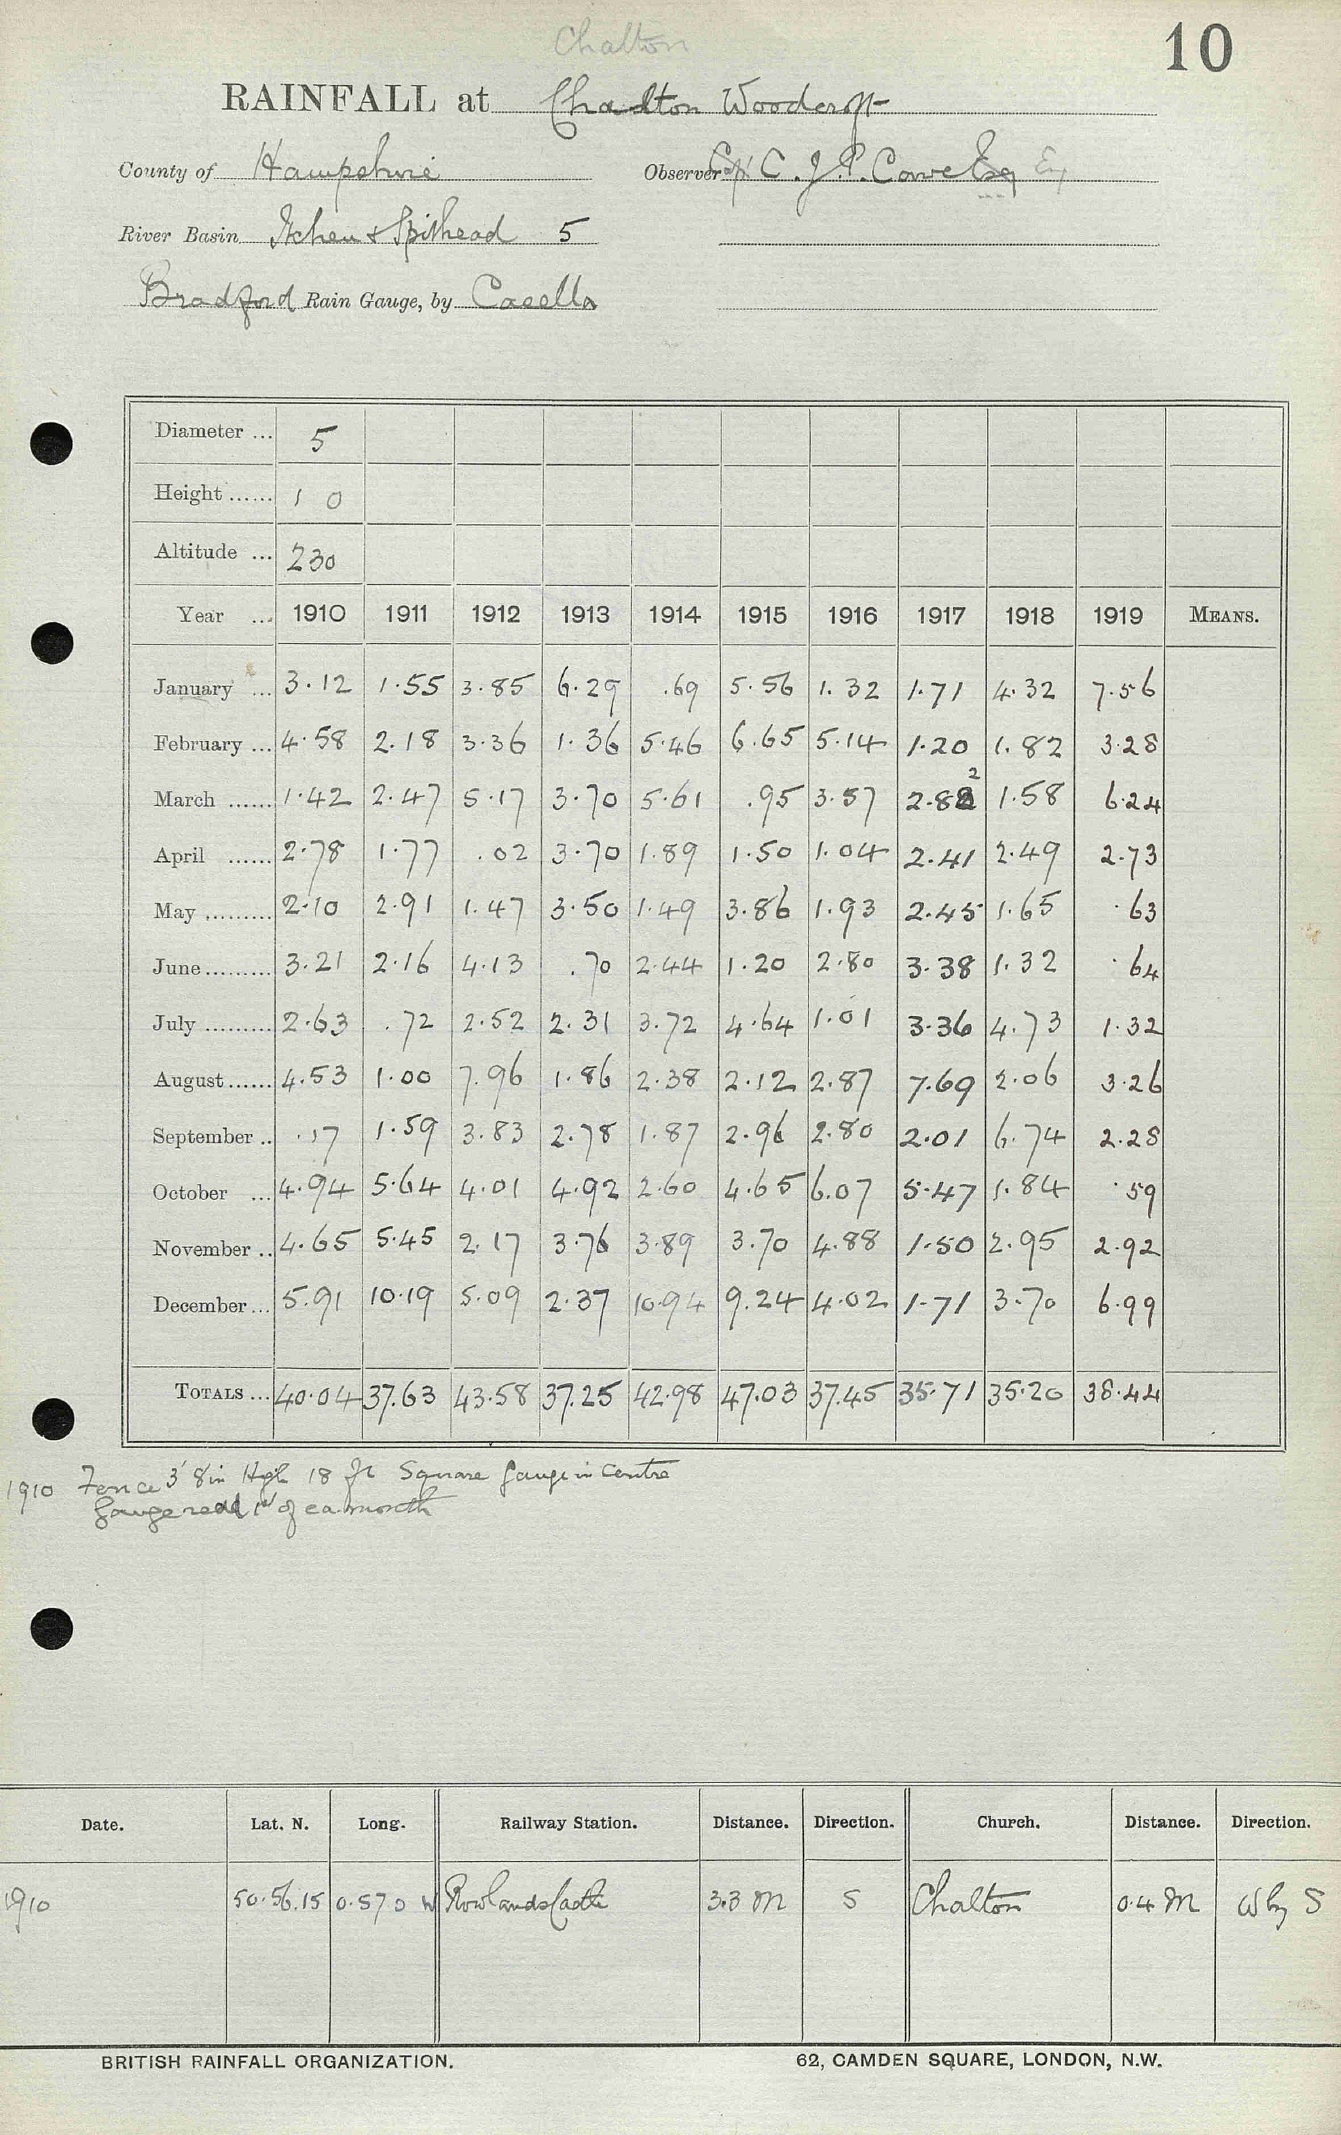 Chalton
10
RAINFALL at Chalton Woodcroft
County of Hampshire Observer Capt C. J. P. Cave Esq
River Basin Itchen & Spithead 5
Bradford Rain Gauge, by Casella
Diameter ... 5
Height ...... 1 0
Altitude ... 230
Year ... 1910 1911 1912 1913 1914 1915 1916 1917 1918 1919 MEANS.
January ... 3.12 1.55 3.85 6.29 .69 5.56 1.32 1.71 4.32 7.56
February ... 4.58 2.18 3.36 1.36 5.46 6.65 5.14 1.20 1.82 3.28
March ...... 1.42 2.47 5.17 3.70 5.61 .95 3.57 2.82 1.58 6.24
April ...... 2.78 1.77 .02 3.70 1.89 1.50 1.04 2.41 2.49 2.73
May ......... 2.10 2.91 1.47 3.50 1.49 3.86 1.93 2.45 1.65 .63
June ......... 3.21 2.16 4.13 .70 2.44 1.20 2.80 3.38 1.32 .64
July ......... 2.63 .72 2.52 2.31 3.72 4.64 1.01 3.36 4.73 1.32
August ...... 4.53 1.00 7.96 1.86 2.38 2.12 2.87 7.69 2.06 3.26
September .. .17 1.59 3.83 2.78 1.87 2.96 2.80 2.01 6.74 2.28
October ... 4.94 5.64 4.01 4.92 2.60 4.65 6.07 5.47 1.84 .59
November .. 4.65 5.45 2.17 3.76 3.89 3.70 4.88 1.50 2.95 2.92
December ... 5.91 10.19 5.09 2.37 10.94 9.24 4.02 1.71 3.70 6.99
TOTALS ... 40.04 37.63 43.58 37.25 42.98 47.03 37.45 35.71 35.20 38.44
1910 Fence 3' 8in High 18 ft Square gauge in centre
Gauge read 1st of ea. month
Date. Lat. N. Long. Railway Station. Distance. Direction. Church. Distance. Direction.
1910 50.56.15 0.57 0 W Rowlands Castle 3.3 M S Chalton 0.4 M W by S
BRITISH RAINFALL ORGANIZATION. 62, CAMDEN SQUARE, LONDON, N.W.